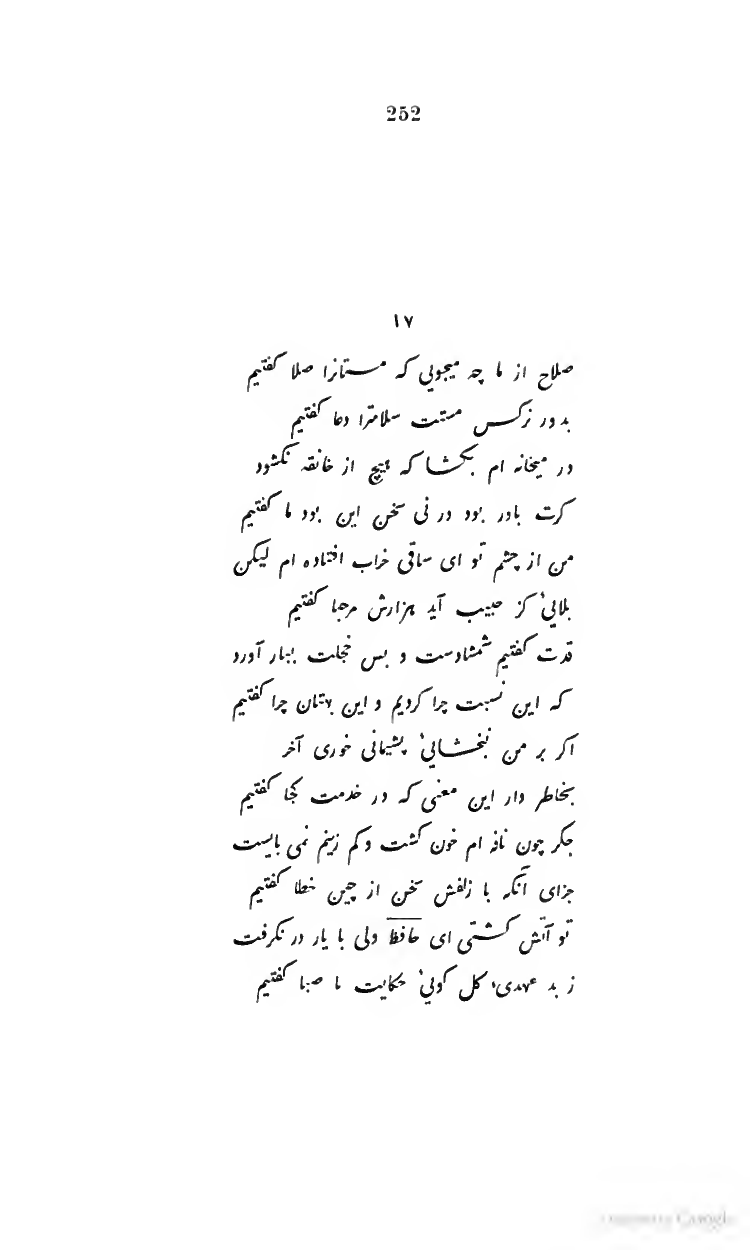 252
١٧
صلاح از ما چه میجویی که مستانرا صلا کفتیم
بدور نرکس مستت سلامترا دعا کفتیم
در میخانه ام بکشا که هیچ از خانقه نکشود
کرت باور بود ور نی سخن این بود ما کفتیم
من از چشم تو ای ساقی خراب افتاده ام لیکن
بلایی کز حبیب آید هزارش مرحبا کفتیم
قدت کفتیم شمشادست و بس خجلت ببار آورد
که این نسبت چرا کردیم و این بهتان چرا کفتیم
اکر بر من نبخشایی پشیمانی خوری آخر
بخاطر دار این معنی که در خدمت کجا کفتیم
جکر چون نافه ام خون کشت و کم زینم نمی بایست
جزای آنکه با زلفش سخن از چین خطا کفتیم
تو آتش کشتی ای حافظ ولی با یار در نکرفت
ز بد عهدیء کل کویی حکایت با صبا کفتیم
Google